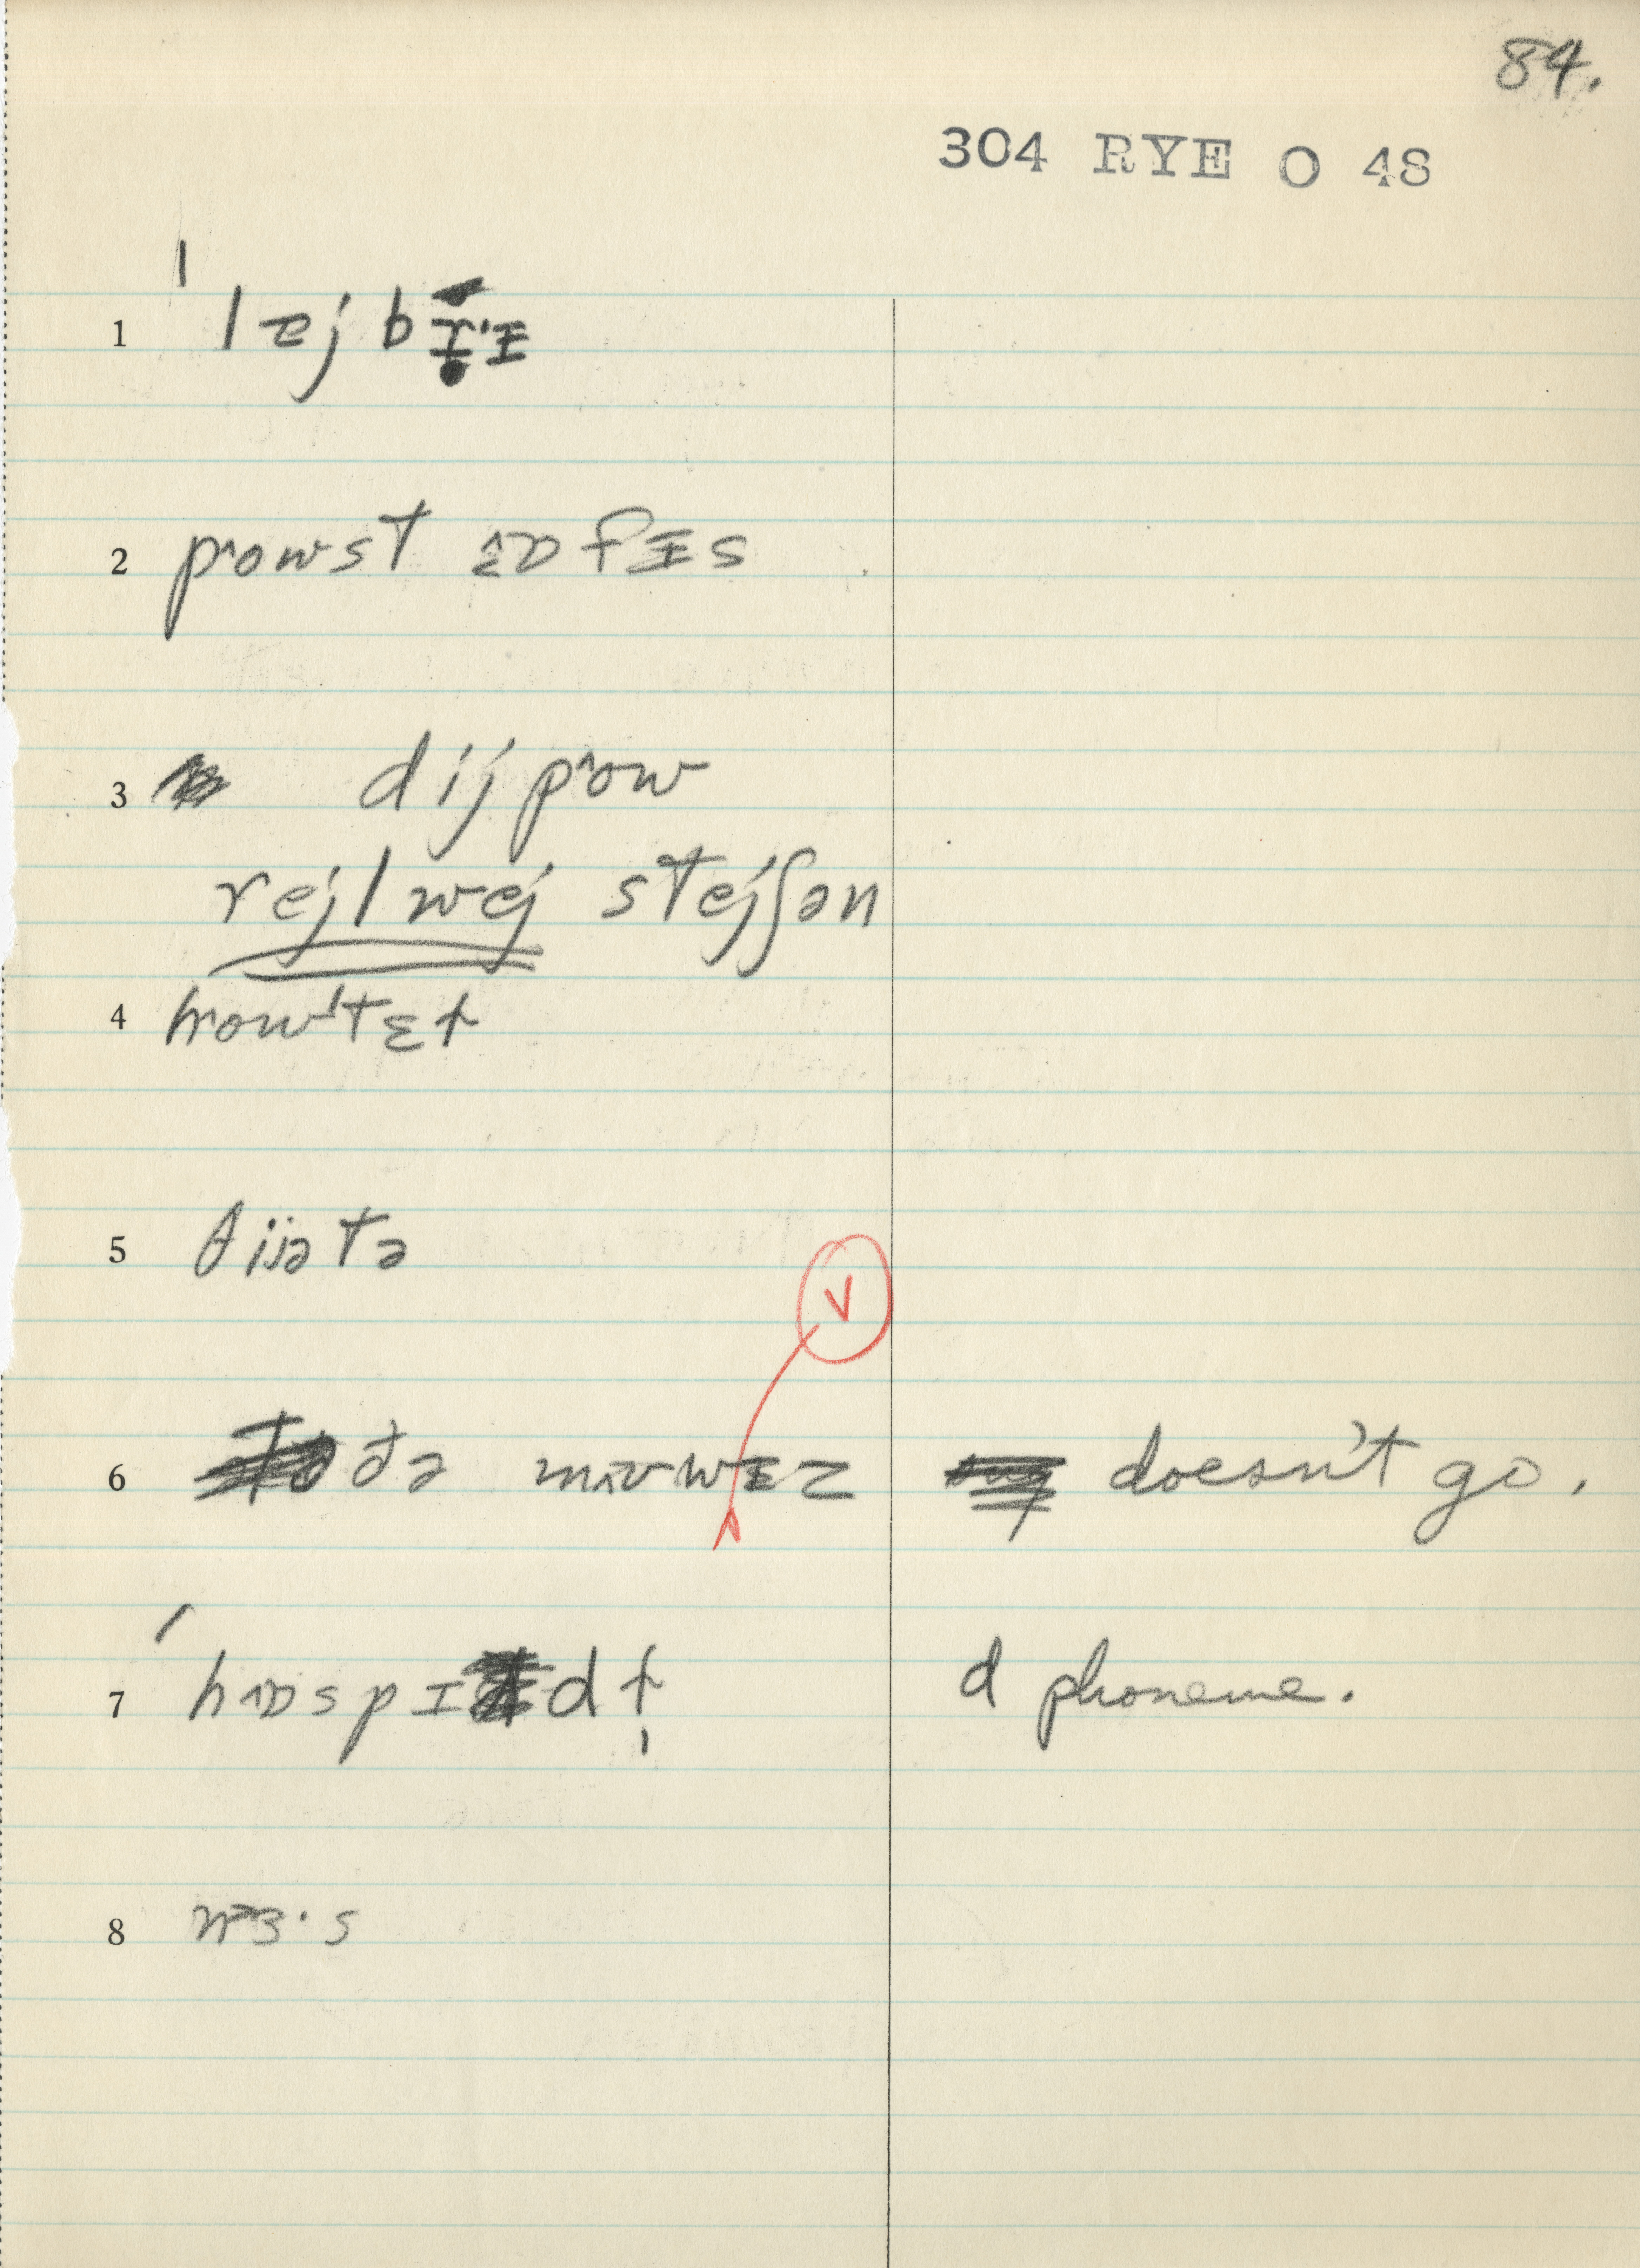 84.
304 RYE O 48
2 p^owst ɒfɪs
3 dij p^ow
rejlwej stejʃən
4 how'tɛɫ
5 θijətə
V
6 ðə mʌvwɪz doesn't go.
7 'hɒspɪdɫ̩ d phoneme.
8 nɜ·s